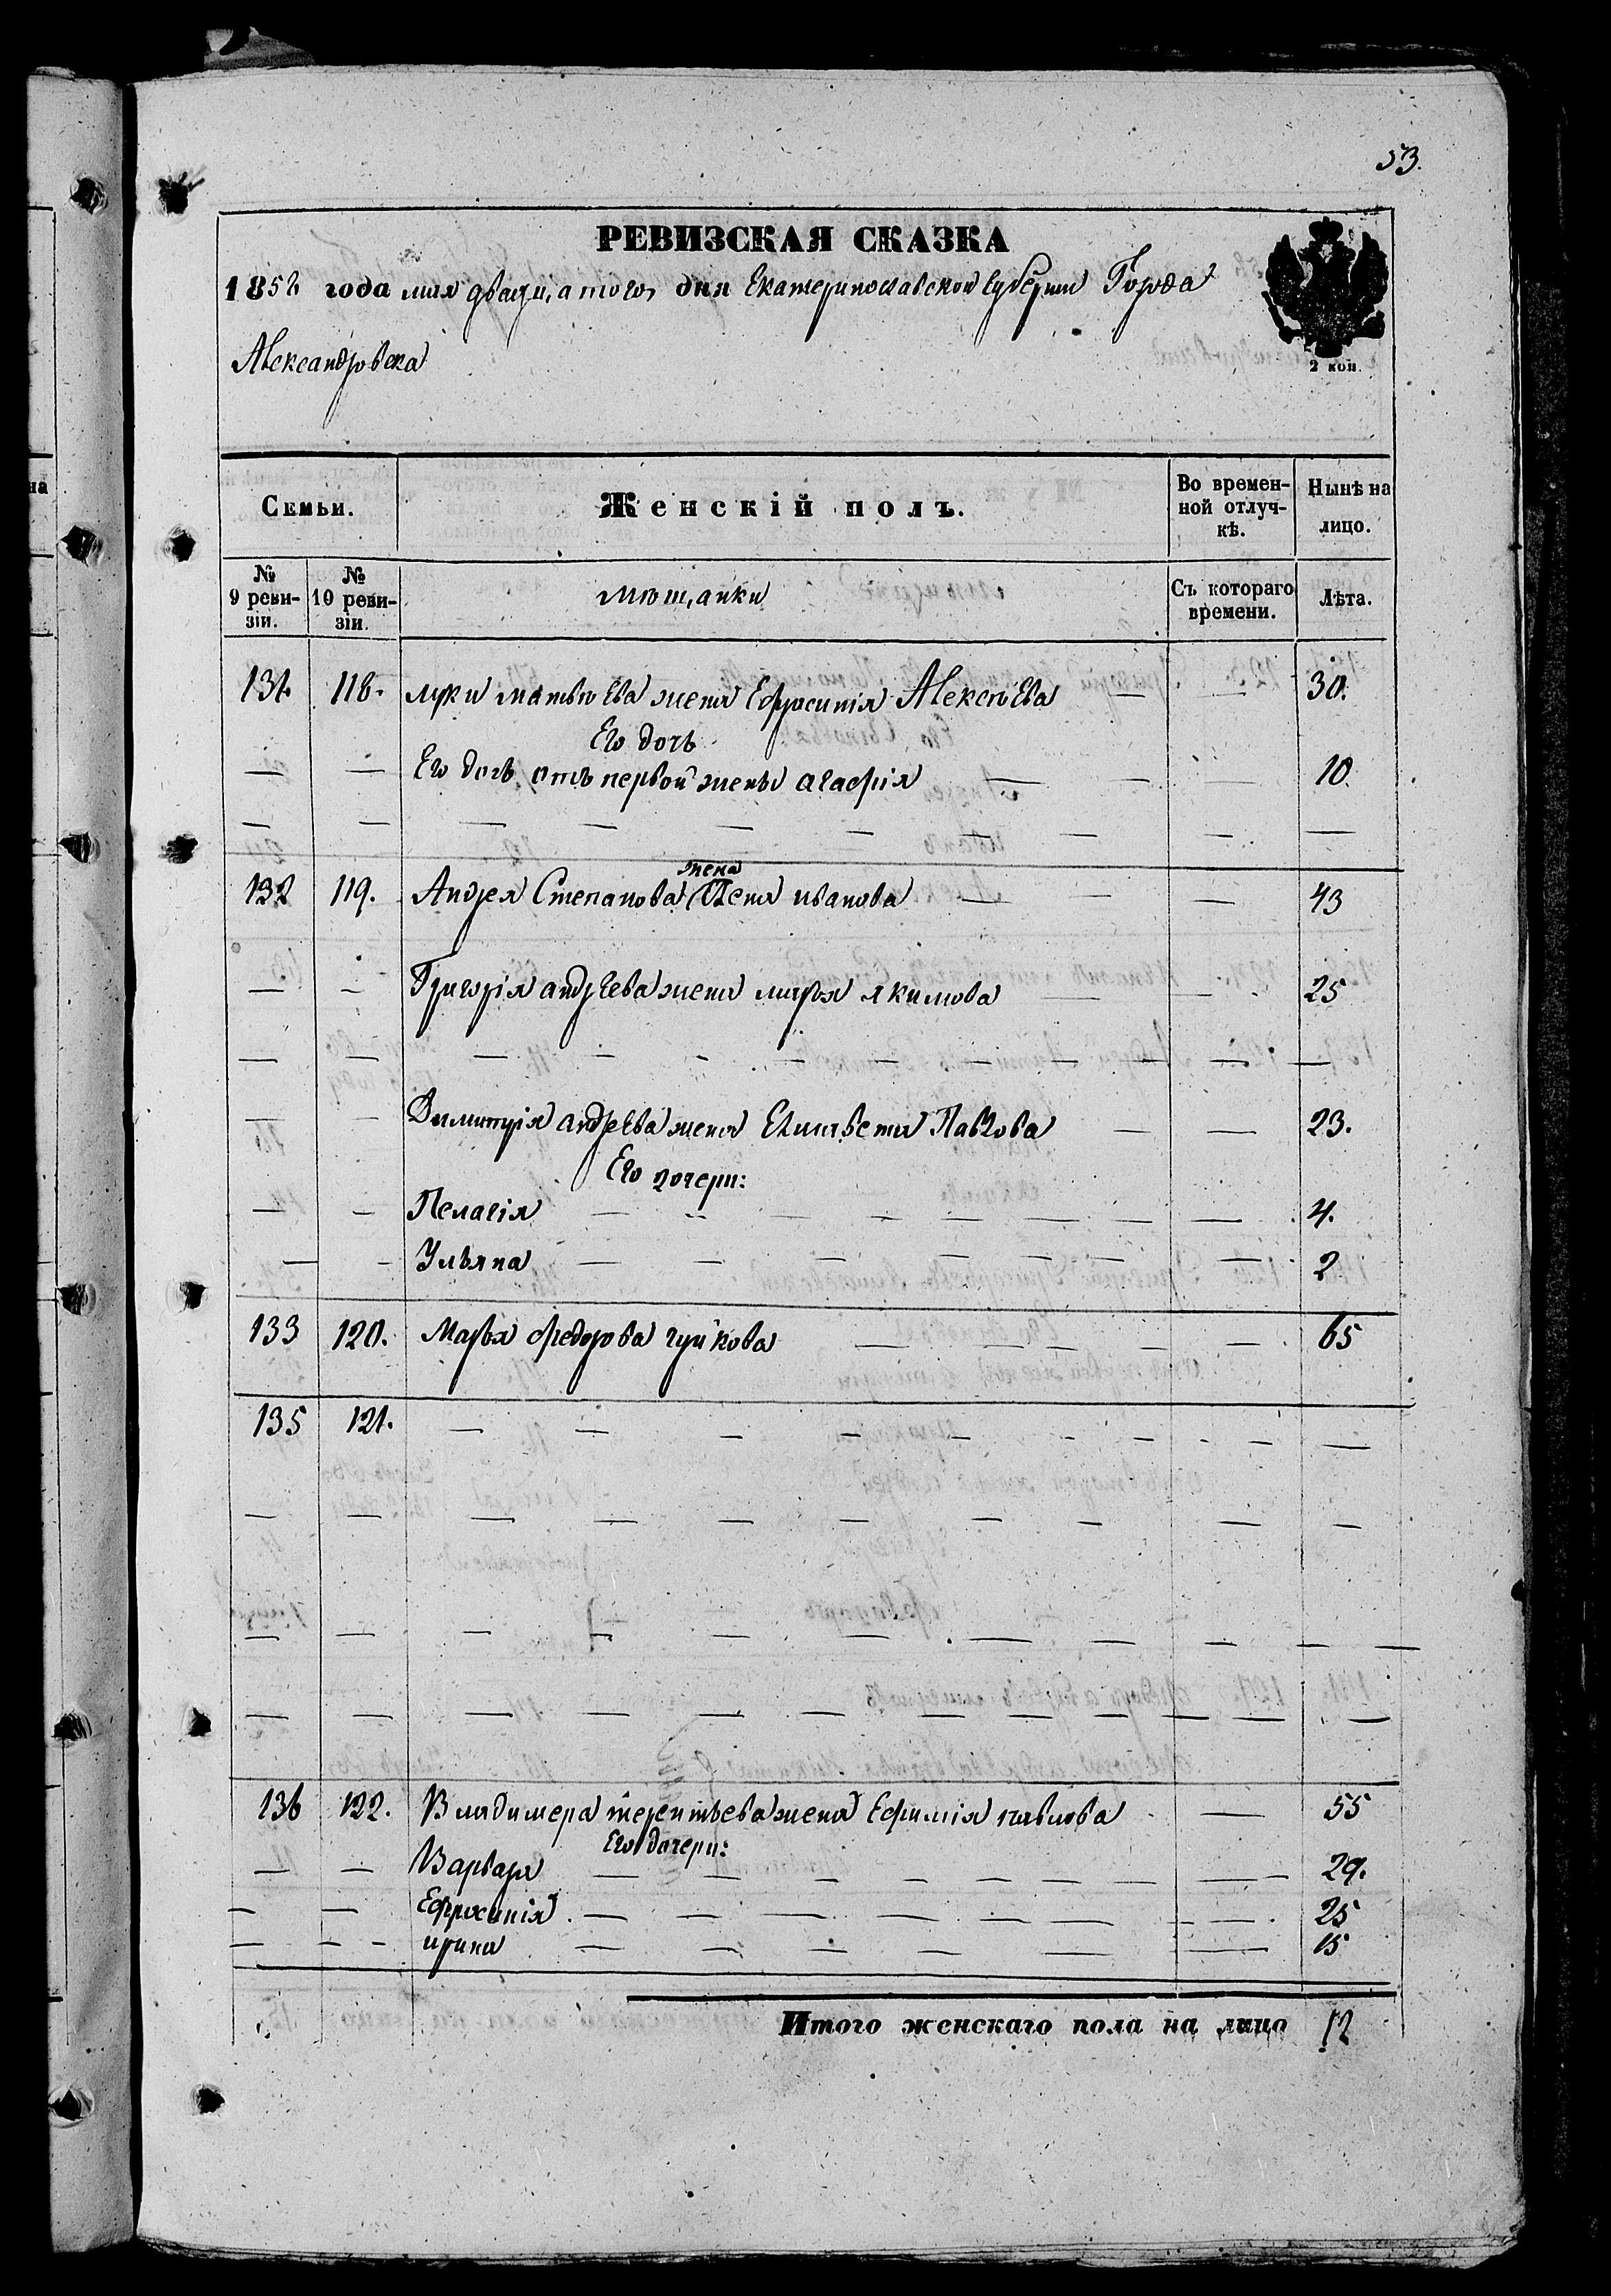 53.
РЕВИЗСКАЯ СКАЗКА
1858 года мая двадцатого дня Екатеринославской Губернии Города
Александровска
2 коп.
Семьи.
Женскій полъ.
Во времен-
ной отлуч-
кѣ.
Нынѣ на
лицо.
№
9 реви-
зіи.
№
10 реви-
зіи.
мѣщанки
Съ котораго
времени.
Лѣта.
131. 118. Луки матвѣева жена Ефросинія Алексѣева — — 30.
Его дочь
— — Его дочь отъ первой жены агафія — — — 10.
— — — — — — — — — —
жена
132 119. Андрея Степанова Иванова — — — 43
— — Григорія андреева жена марья якимова — — 25
— — — — — — — — — — —
— — Димитрія андреева жена Елисавета Павлова — — 23.
Его дочери:
— — Пелагія — — — — — — — — 4.
— — Ульяна — — — — — — — 2
133 120. Марья федорова чуйкова — — — — — 65
135 121. — — — — — — — — — —
— — — — — — — — — —
— — — — — — — — — — —
— — — — — — — — — — — —
136 122. Владимера терентьева жена Ефимія павлова — 55
Его дочери:
— — Варвара — — — — — — — 29.
— — Ефросинія — — — — — — — 25
— — ирина — — — — — — 15
Итого женскаго пола на лицо 12